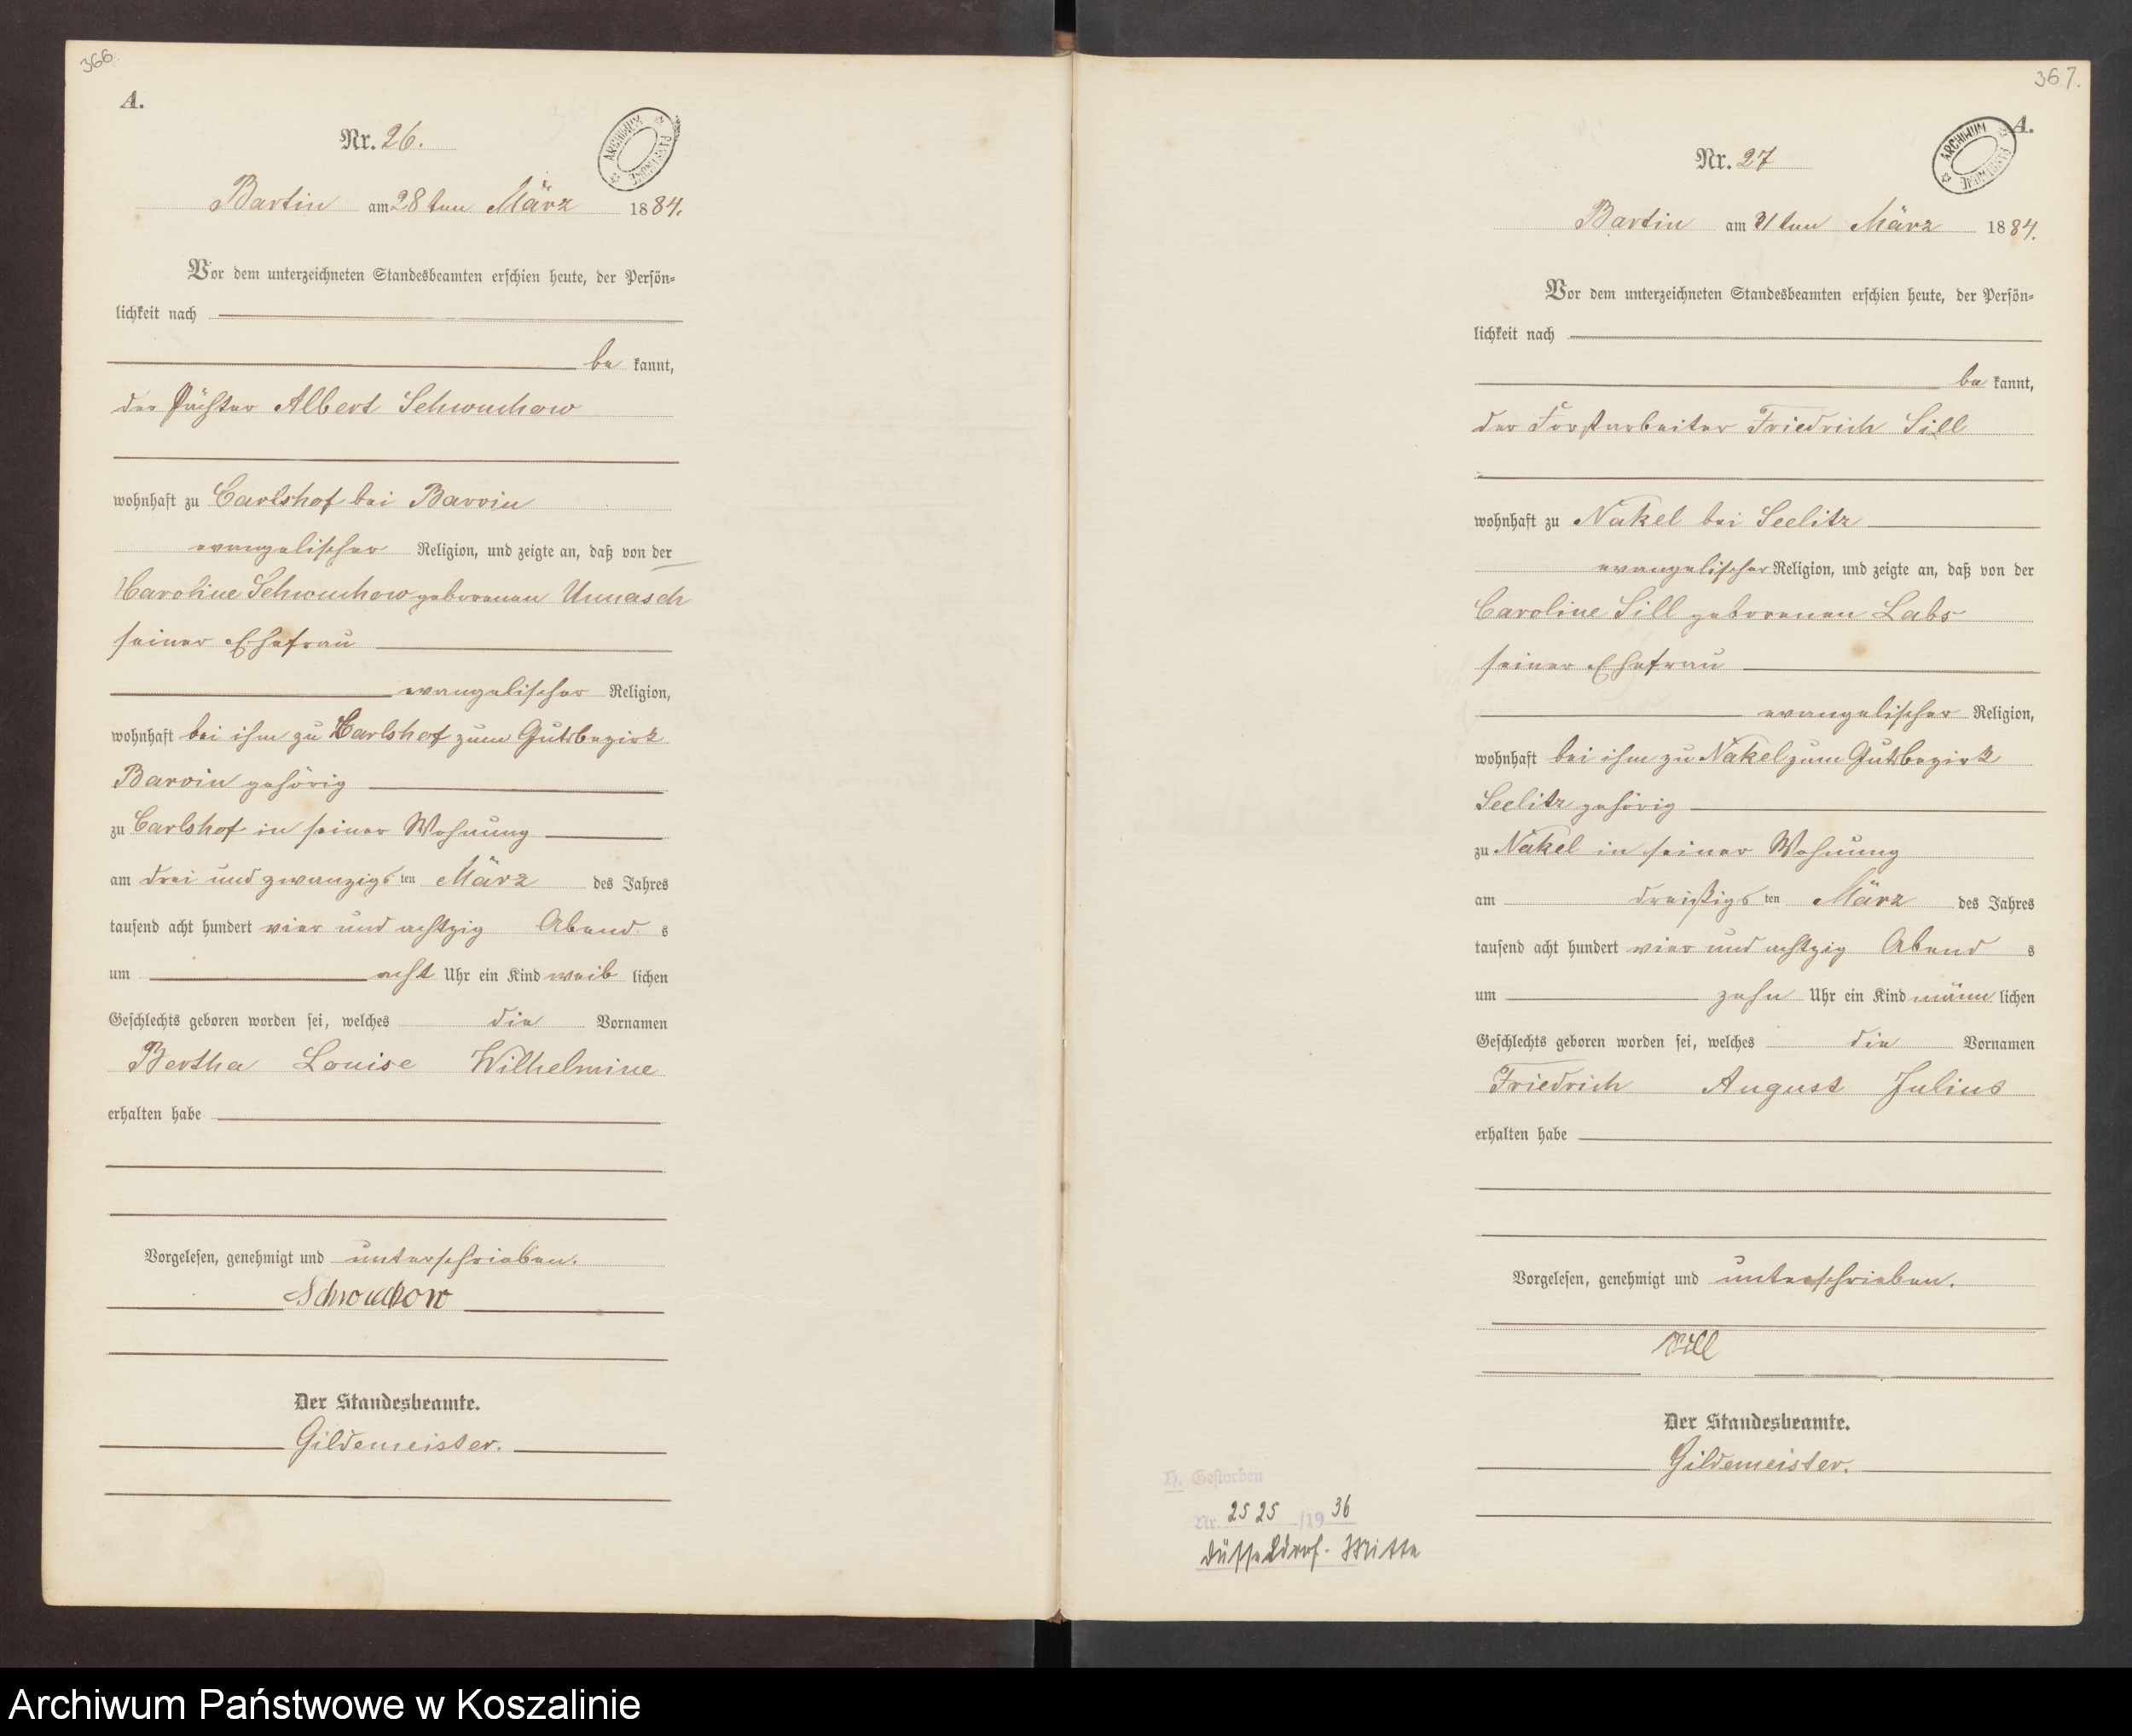 366.
A.
Nr. 26.
ARCHIWUM PAŃSTWOWE
Bartin am 28ten März 1884.
Vor dem unterzeichneten Standesbeamten erschien heute, der Persön-
lichkeit nach
be kannt,
der Pächter Albert Schwuchow
wohnhaft zu Carlshof bei Barvin
evangelischer Religion, und zeigte an, daß von der
Caroline Schwuchow geborenen Unnasch
seiner Ehefrau
evangelischer Religion,
wohnhaft bei ihm zu Carlshof zum Gutsbezirk
Barvin gehörig
zu Carlshof in seiner Wohnung
am drei und zwanzigsten März des Jahres
tausend acht hundert vier und achtzig Abend s
um acht Uhr ein Kind weib lichen
Geschlechts geboren worden sei, welches die Vornamen
Bertha Louise Wilhelmine
erhalten habe
Vorgelesen, genehmigt und unterschrieben.
Schwuchow
Der Standesbeamte.
Gildemeister.
367.
A.
Nr. 27
ARCHIWUM PAŃSTWOWE
Bartin am 31ten März 1884.
Vor dem unterzeichneten Standesbeamten erschien heute, der Persön-
lichkeit nach
be kannt,
der Forstarbeiter Friedrich Sill
wohnhaft zu Nakel bei Seelitz
evangelischer Religion, und zeigte an, daß von der
Caroline Sill geborenen Labs
seiner Ehefrau
evangelischer Religion,
wohnhaft bei ihm zu Nakel zum Gutsbezirk
Seelitz gehörig
zu Nakel in seiner Wohnung
am dreißigsten März des Jahres
tausend acht hundert vier und achtzig Abend s
um zehn Uhr ein Kind männ lichen
Geschlechts geboren worden sei, welches die Vornamen
Friedrich August Julius
erhalten habe
Vorgelesen, genehmigt und unterschrieben.
Sill
Der Standesbeamte.
Gildemeister.
H. Gestorben
Nr. 2525 /1936
Düsseldorf-Mitte
Archiwum Państwowe w Koszalinie